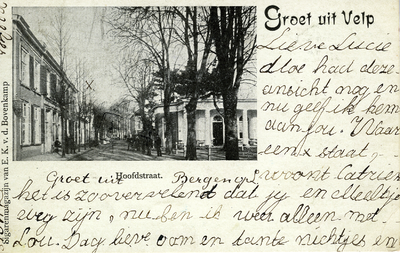 Groet uit Velp
Lieve Lucie
had deze
ansicht nog en
nu geef ik hem
aan jou. Waar
een x staat
woont Catrien
Hoofdstraat.
Groet uit
het is zoo vervelend dat jij en
weg zijn, nu ben ik weer alleen met
Lou. Dag lieve oom en tante nichtjes en
Sigarenmagazijn van E. K. v. d. Bovenkamp